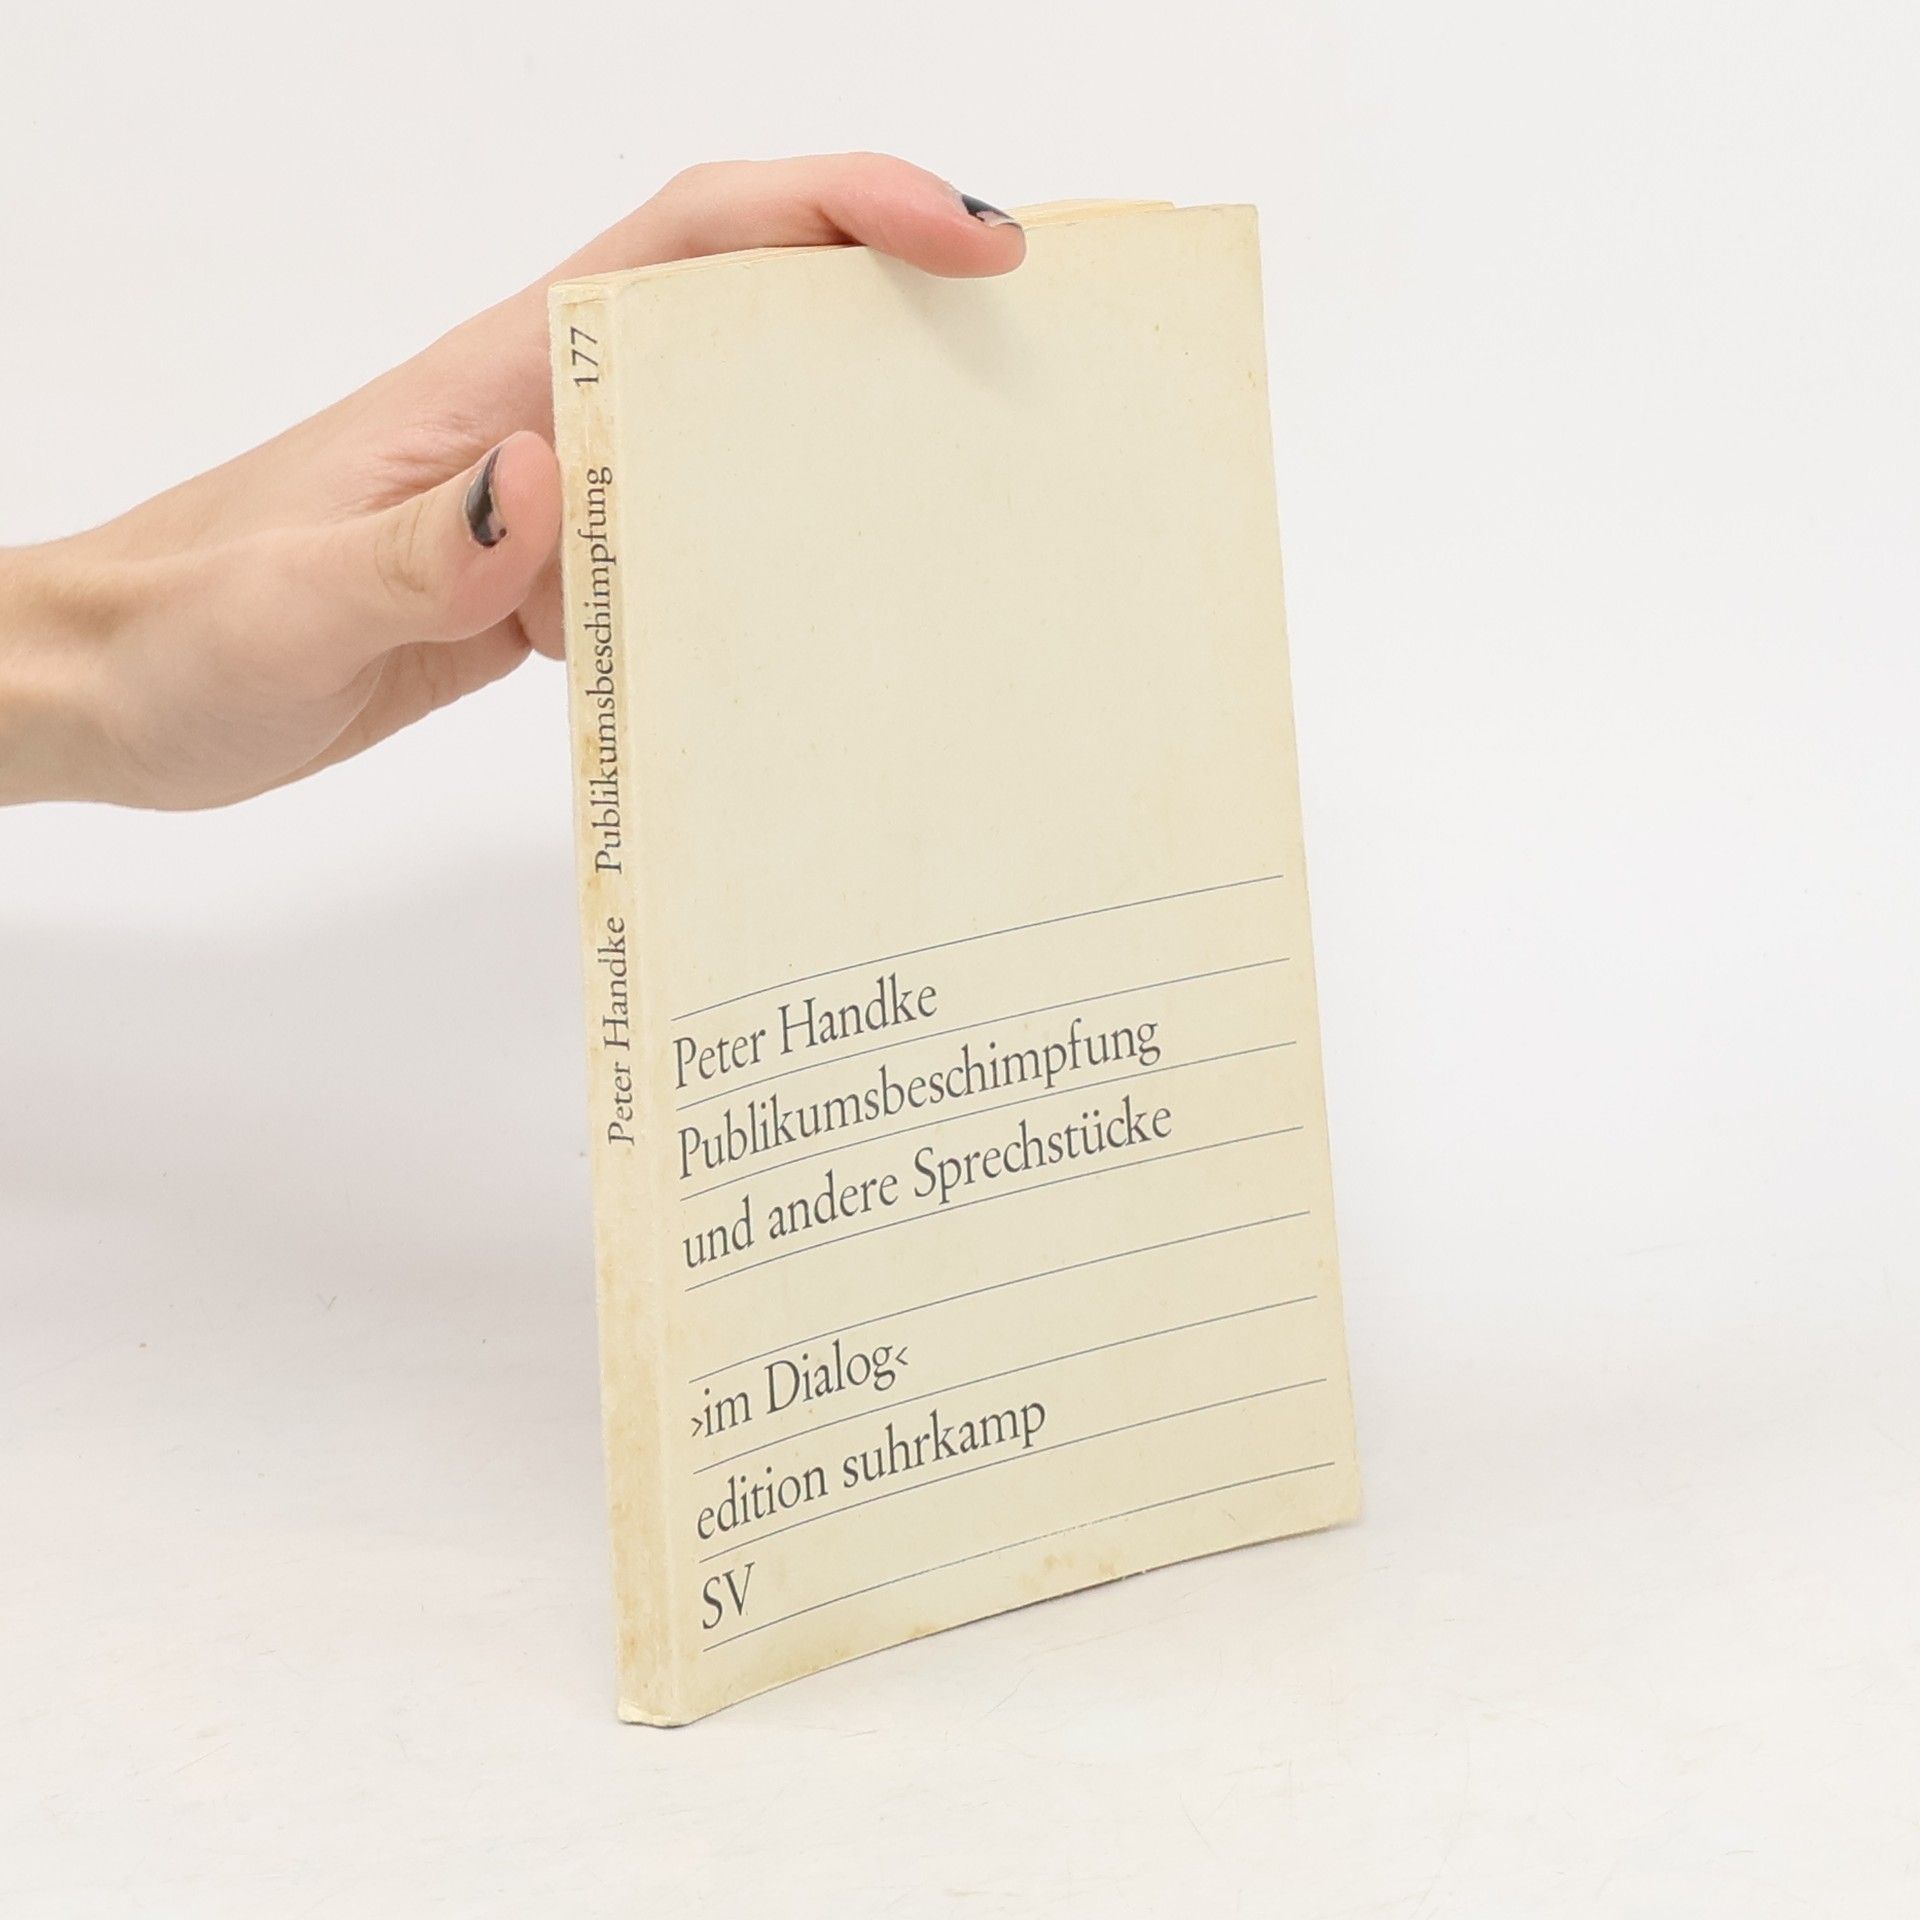 Peter Handke Publikumsbeschimpfung 177
Peter Handke
Publikumsbeschimpfung
und andere Sprechstücke
›im Dialog‹
edition suhrkamp
SV